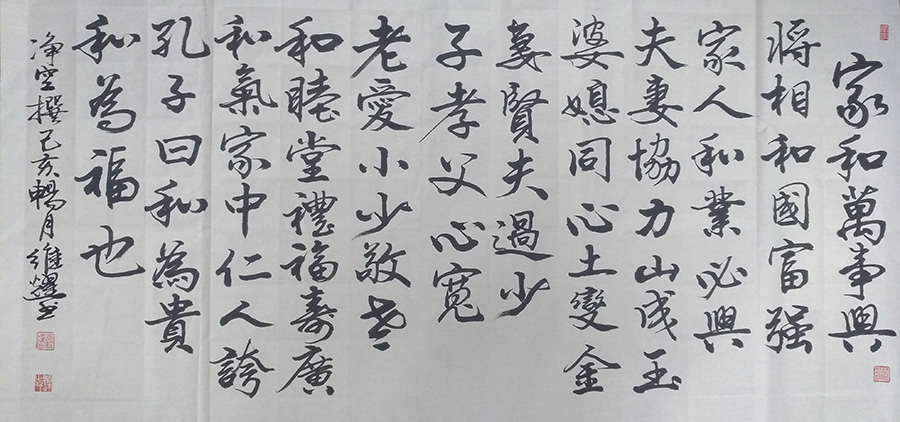 家和萬事興
將相和國富强
家人和業必興
夫妻協力山成玉
婆媳同心土變金
妻賢夫過少
子孝父心寬
老愛小少敬老
和睦堂禮福壽廣
和氣家中仁人誇
孔子曰和為貴
和為福也
净空撰己亥暢月維耀書